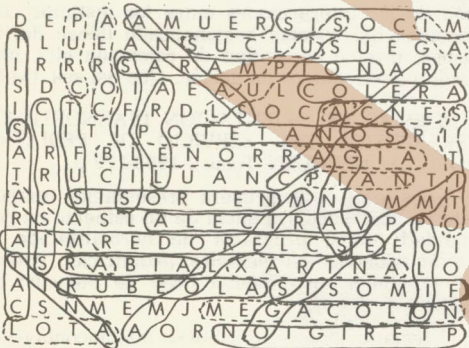 D E P A A A M U E R S I S O C I M
T L U E A N S U C L U S U E G A
I R R R S A R A M P I O N D A R Y
S D C O I A E A U L C O L E R A
I C T C F R D L S O C A C N E S
S I T I P O T E T A N O S R I
A R F B L E N O R R A G I A T
T F R U C I L U A N C P I A N T L
A O S I S O R U E N M N O M M T
R S A S L A L E C I R A V P P O
A I M R E D O R E L C S E E O I
I S R A B I A L X A R T N A L O
A R U B E O L A S I S O M I F
C S N M E M J M E G A C O L O N
L O T A A O R N O I G I R E T P